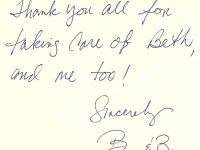 Thank you all for
taking care of Beth,
and me too!
Sincerely,
B